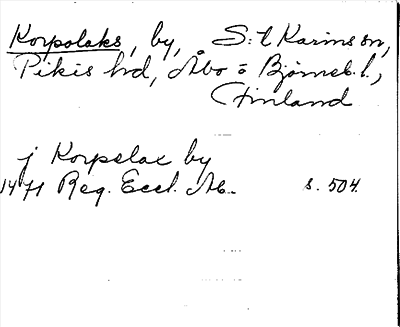 Korpolaks, by, S:t Karins sn,
Pikis hd, Åbo o Björneb. l.,
Finland
j Korpelax by
1471 Reg. Eccl. Ab. s. 504.